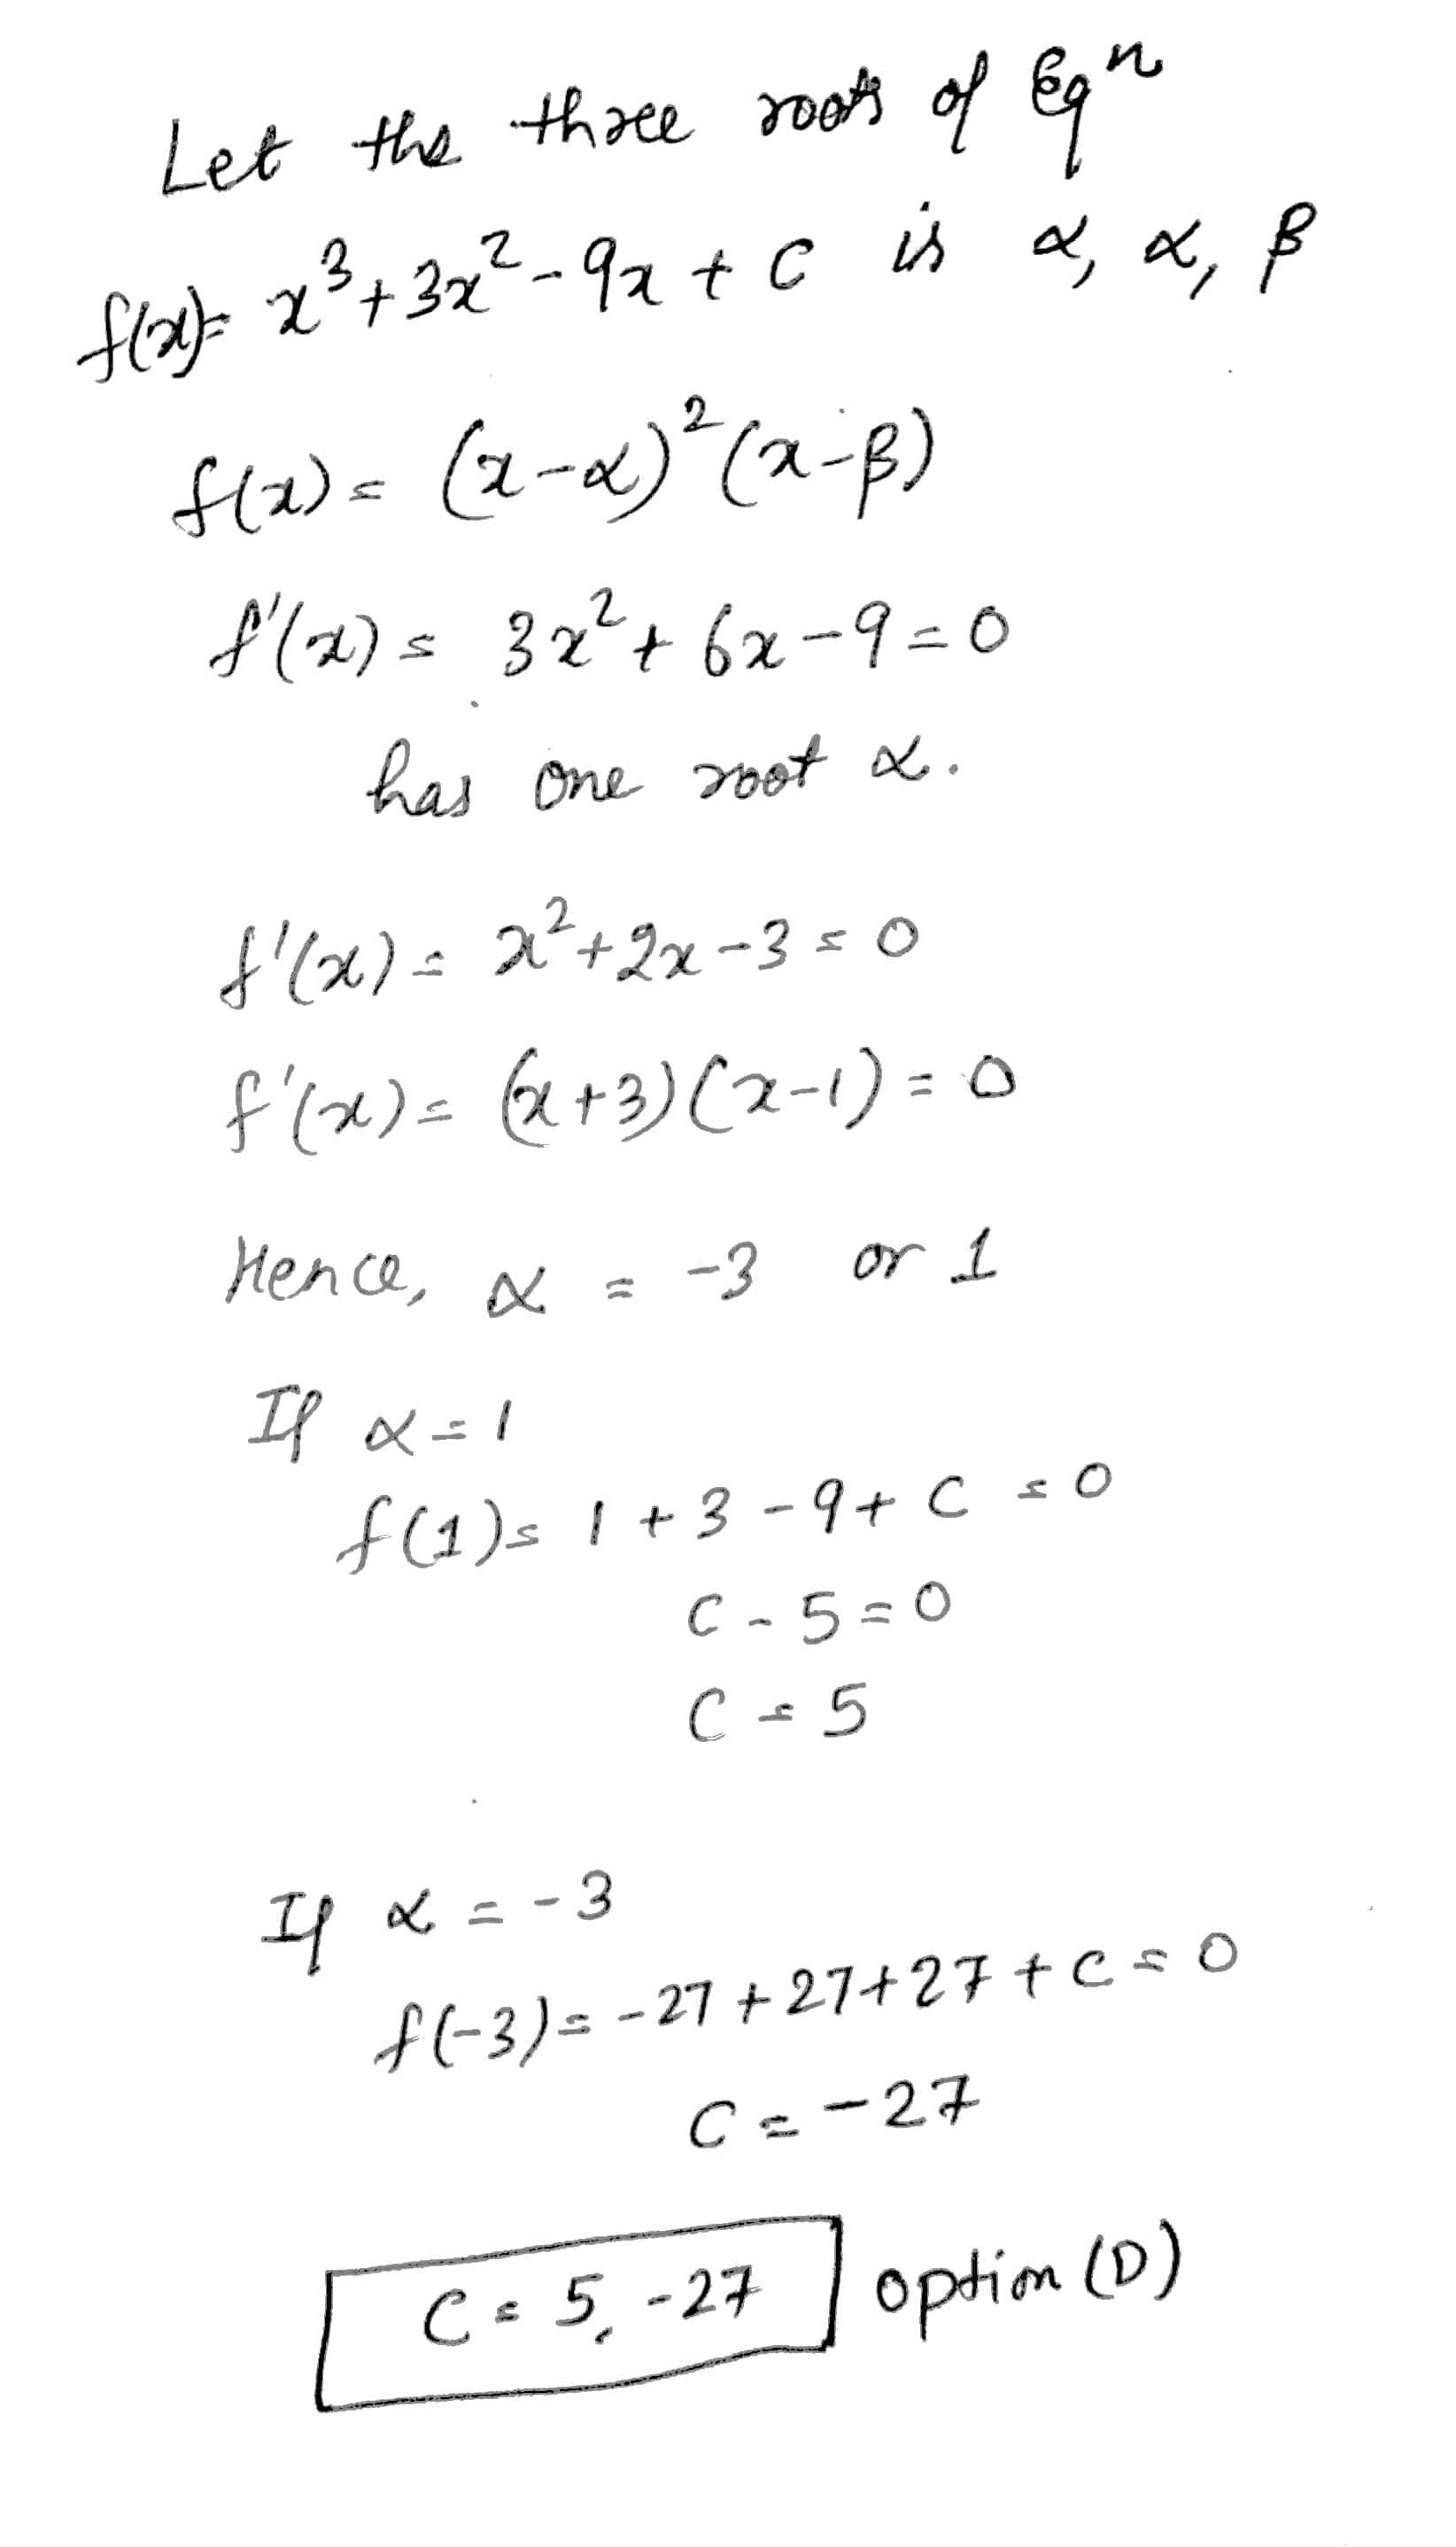 Let the three roots of Eqⁿ
f(x)= x³+3x²-9x + C is α, α, β
f(x) = (x-α)²(x-β)
f'(x) = 3x²+ 6x-9=0
has one root α.
f'(x) = x²+2x-3 = 0
f'(x) = (x+3)(x-1) = 0
Hence, α = -3 or 1
If α=1
f(1) = 1+3-9+ C = 0
C - 5 = 0
C = 5
If α = -3
f(-3) = -27+27+27+C = 0
C = -27
C = 5, -27 option (D)